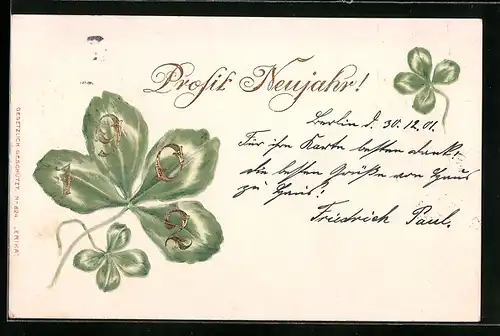 Prosit Neujahr!
Berlin d. 30.12.01.
Für ihre Karte besten Dank.
die besten Grüße von Haus
zu Haus!
Friedrich Paul.
1 9 0 2
GESETZLICH GESCHÜTZT. No 624 „ERIKA“